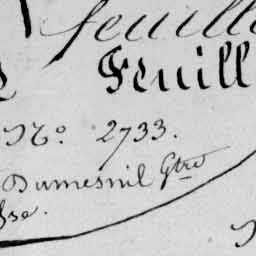 feuill
Feuill
N.º 2733.
Dumesnil Gtre